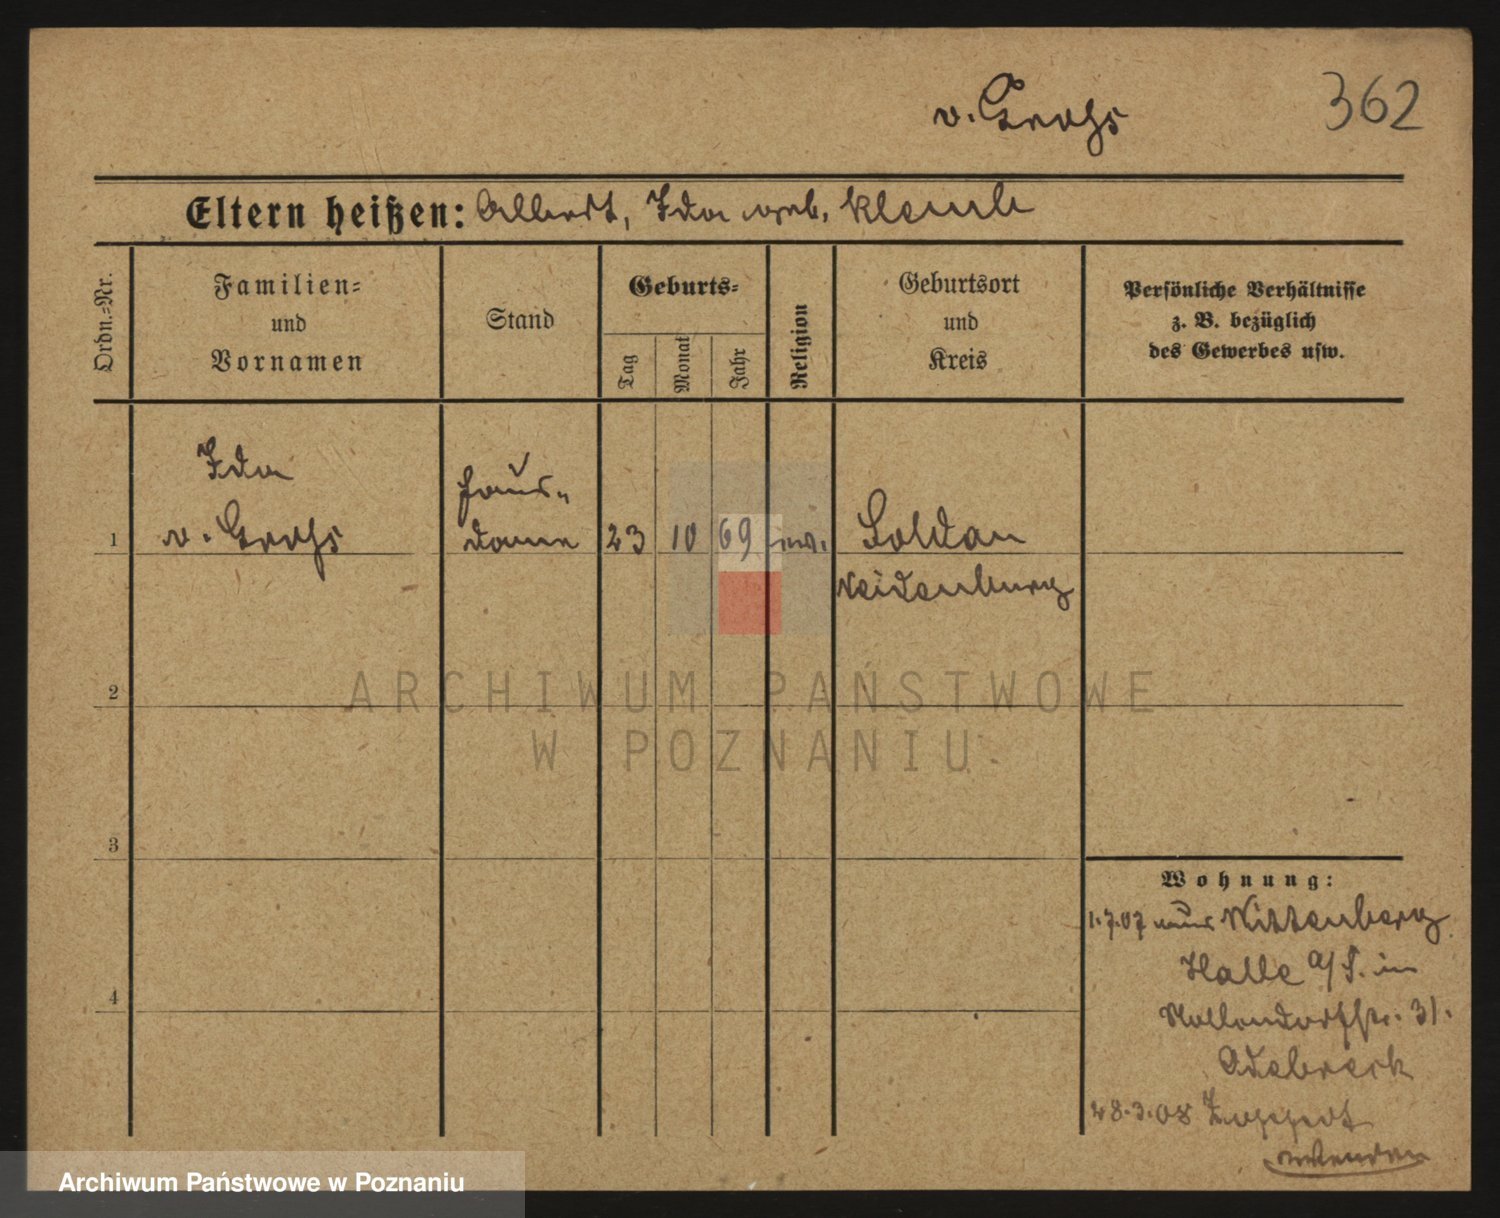 v. Grohs
362
Eltern heißen: Albert, Ida geb. Klemb
Ordn.-Nr.
Familien-
und
Vornamen
Stand
Geburts-
Tag
Monat
Jahr
Religion
Geburtsort
und
Kreis
Persönliche Verhältnisse
z. B. bezüglich
des Gewerbes usw.
Ida
v. Grohs
Haus-
dame
1
23
10
69
ev.
Soldau
Neidenburg
2
3
4
ARCHIWUM PAŃSTWOWE
W POZNANIU
Wohnung:
1.7.07 aus Wittenberg
Halle a/S. in
Nollendorfstr. 31.
Odebreck
28.3.08 Zoppot
wenden
Archiwum Państwowe w Poznaniu